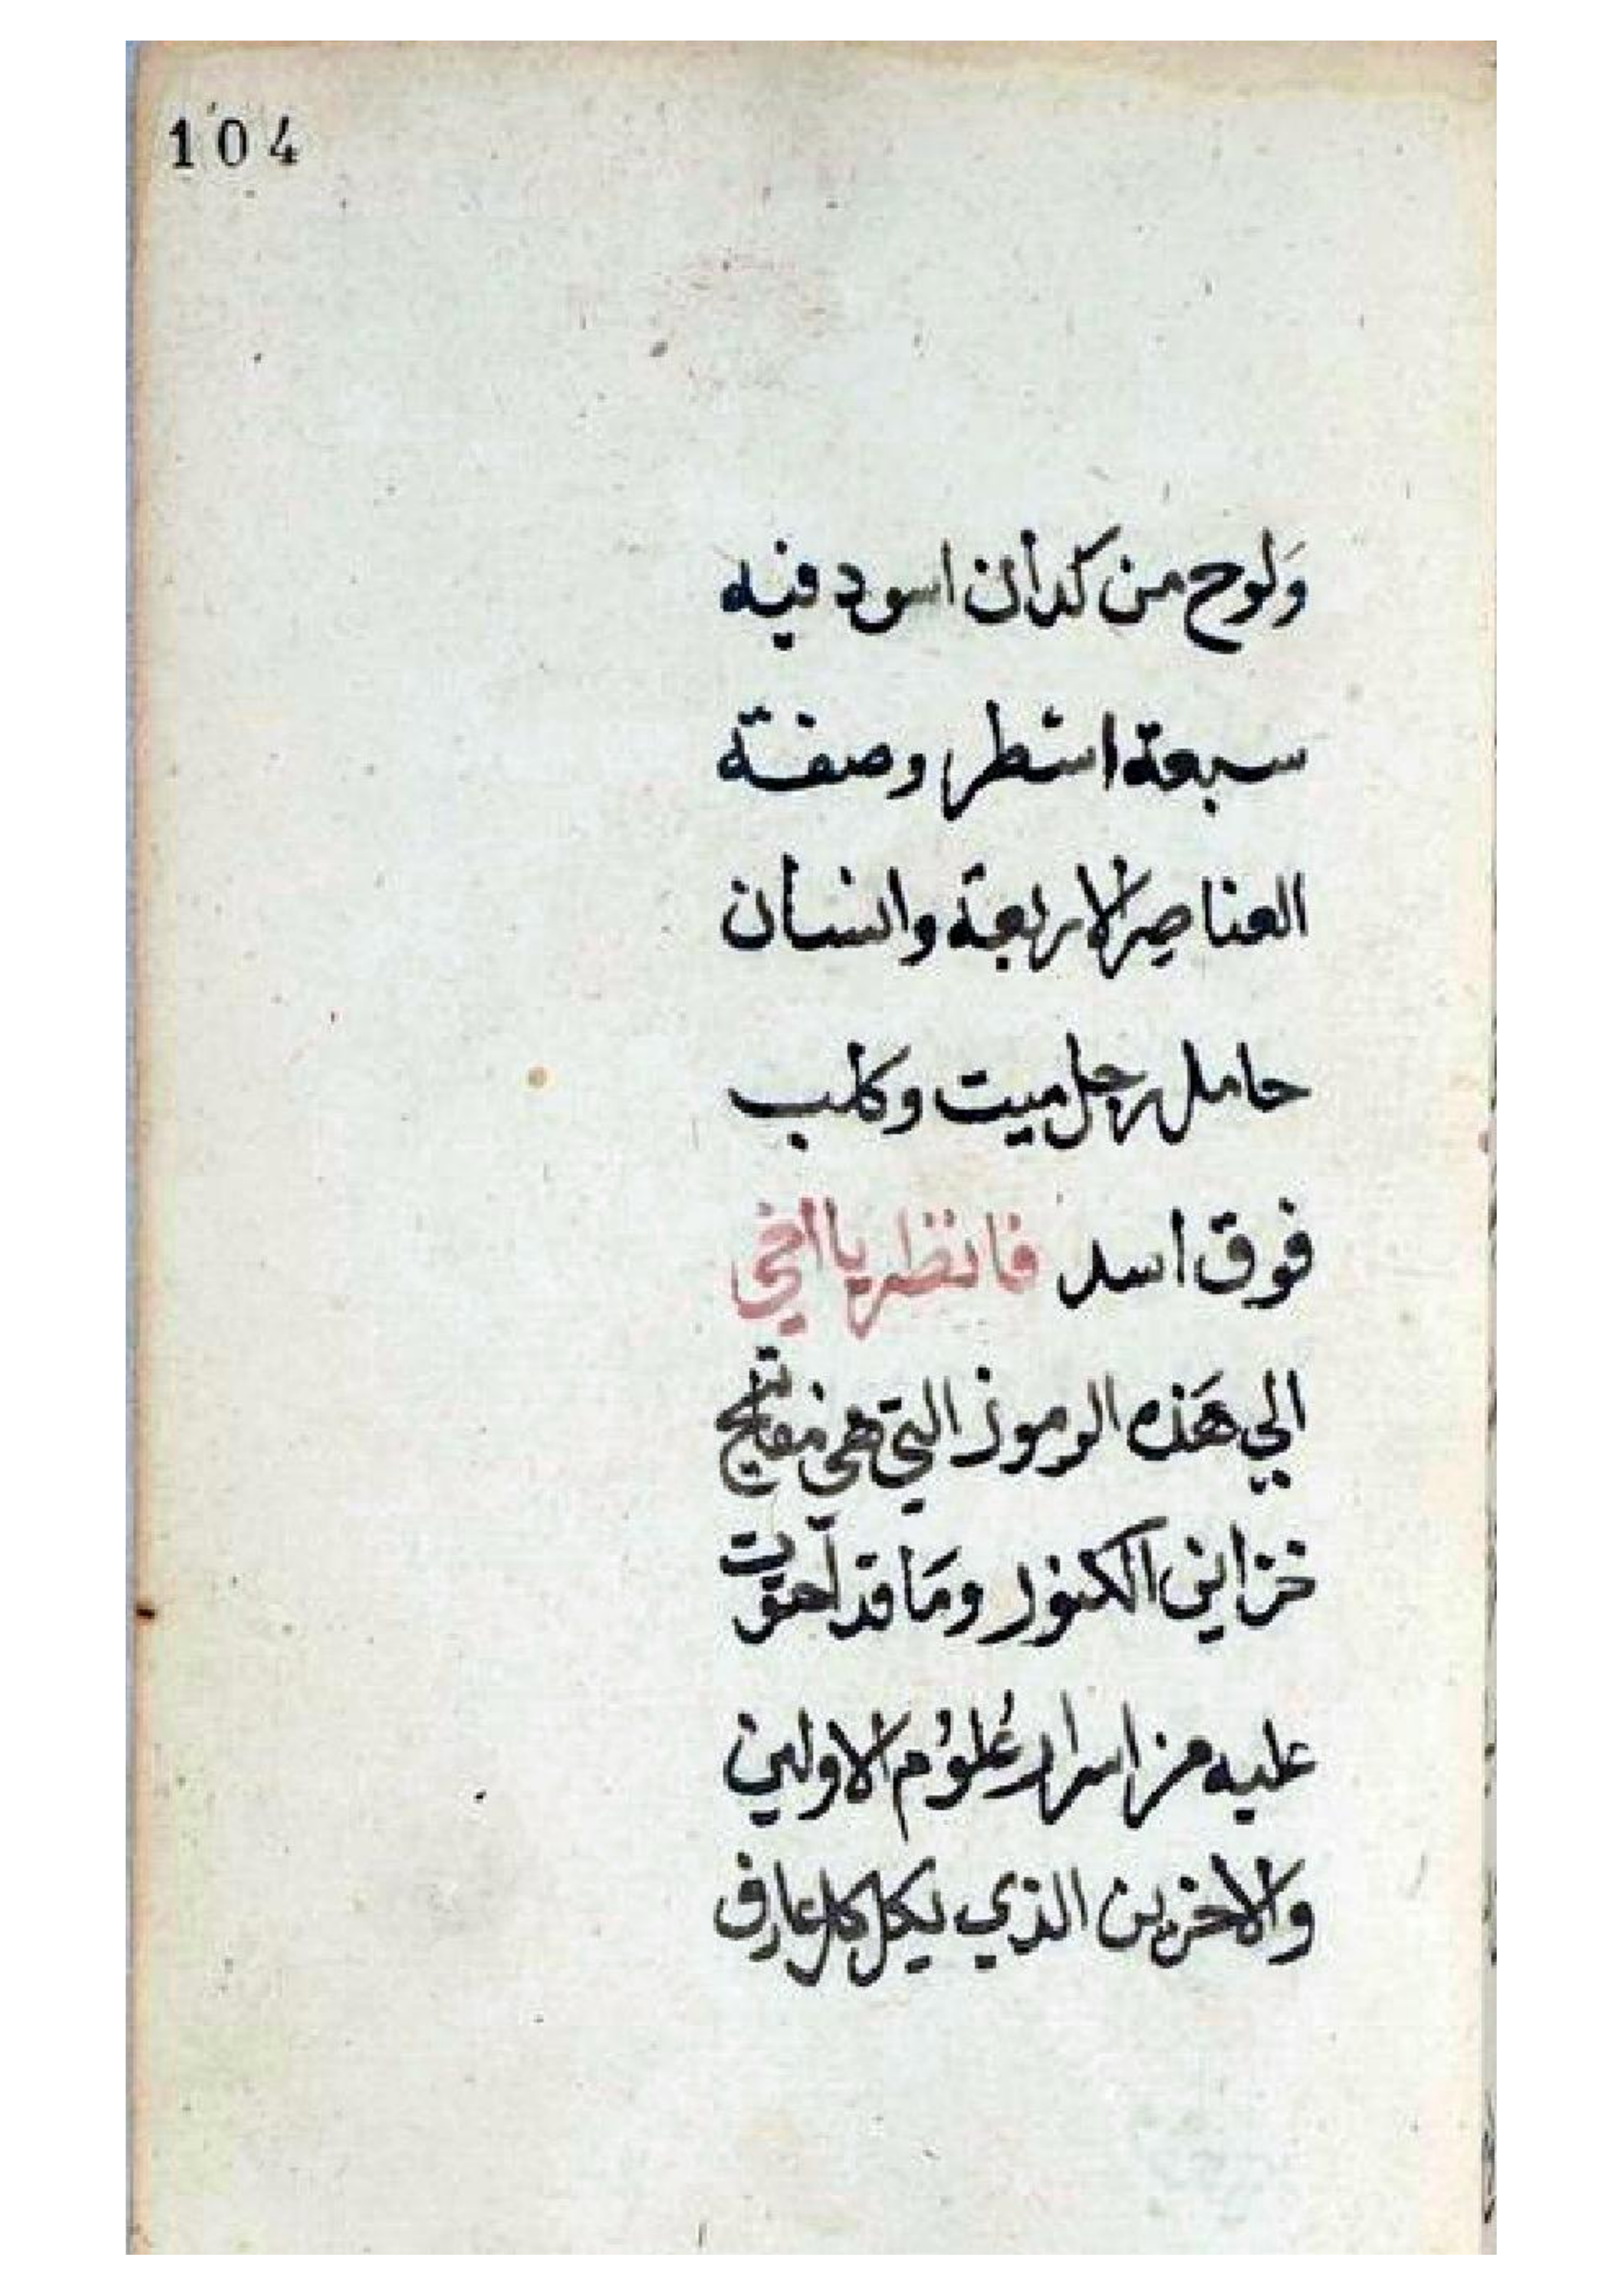 104
وَلوح من كدان اسود فيه
سبعة اسطر وصفة
العناصر الاربعة وانسان
حامل رجل ميت وكلب
فوق اسد فانظر يا اخي
الي هَذه الرموز التي هي مفاتيح
خزاين الكنوز ومَا قد احتوت
عليه من اسرار عُلوُم الاولين
والاخرين الذي يكل كل عارف